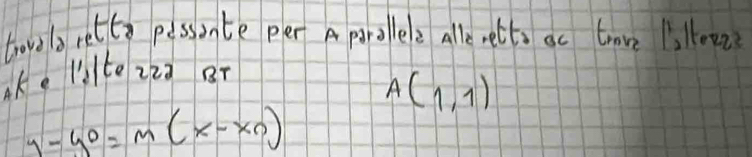 trova la retta passante per A parallela alla retta ac trova l'altezza
AK e l'altezza BT
A(1,1)
y-y0=m(x-x0)